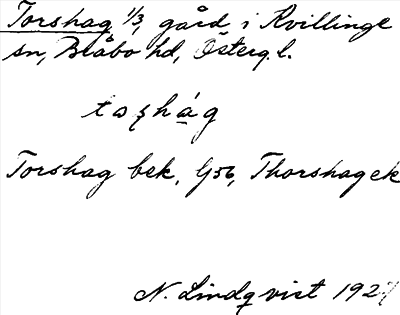 Torshag 1/3, gård i Kvillinge
sn, Bråbo hd, Österg.l.
toʂhág
Torshag bek, G56, Thorshag ek
N. Lindqvist 1927